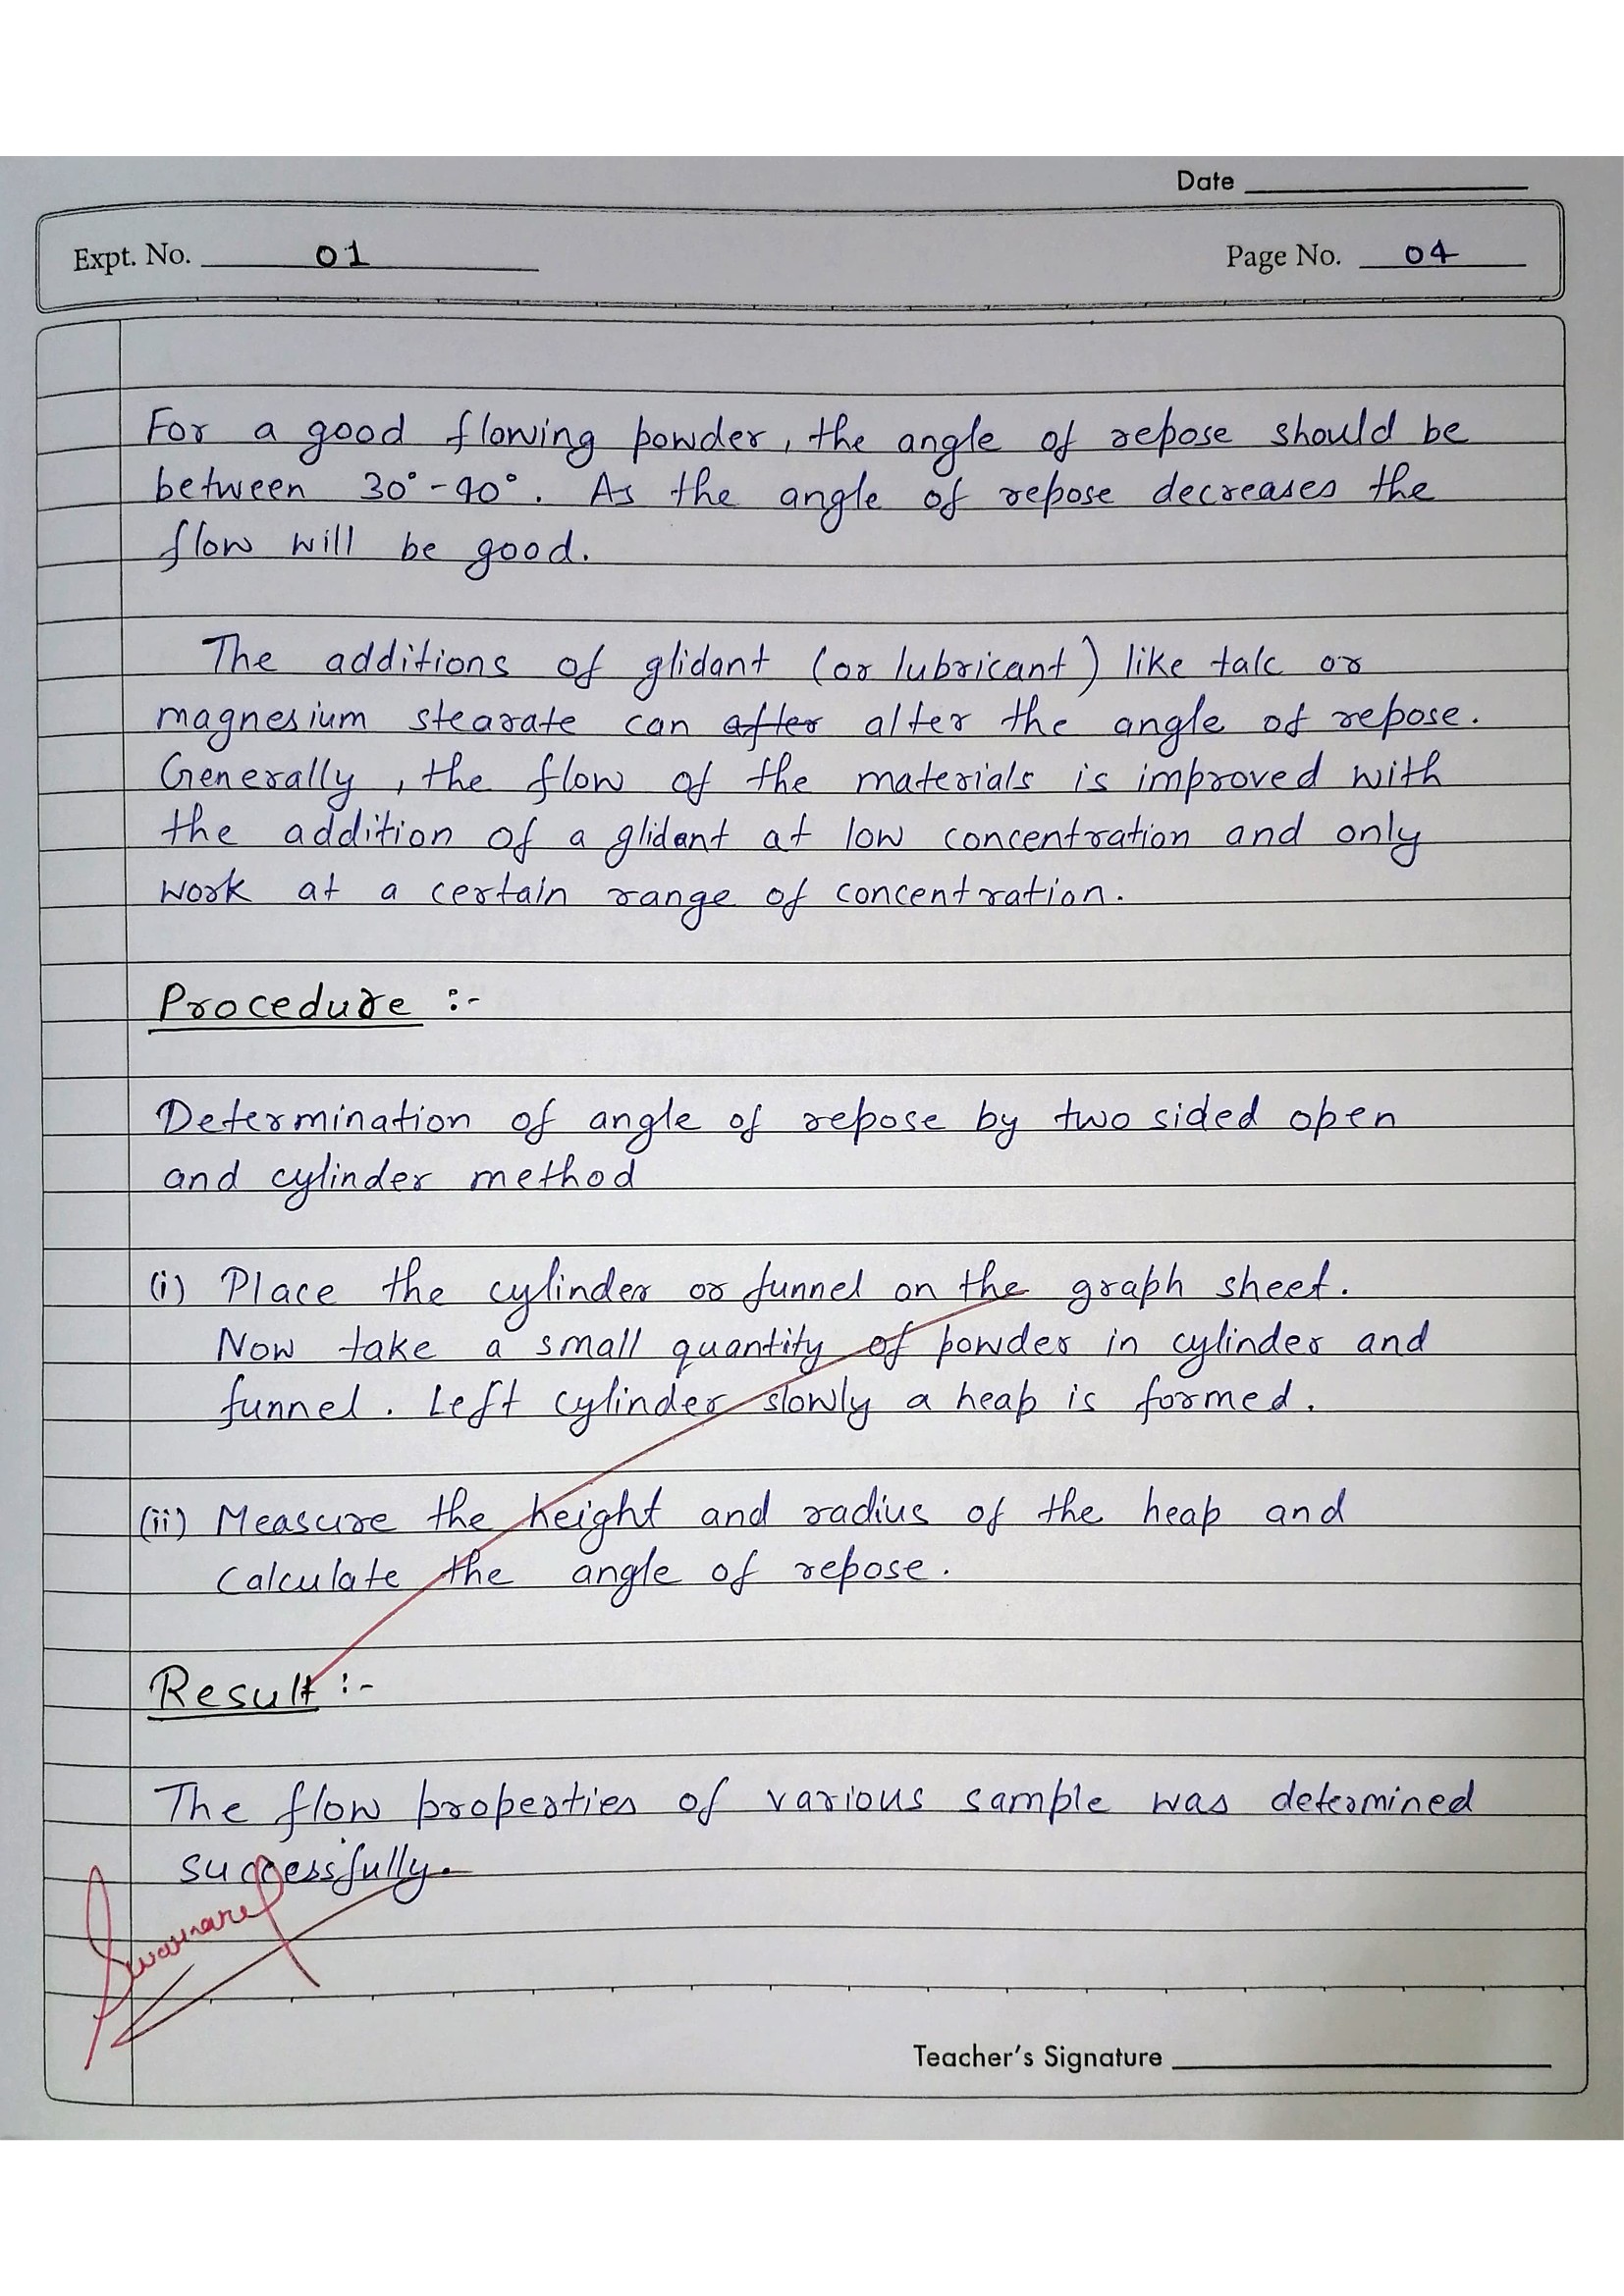 Date
Expt. No. 01
Page No. 04
For a good flowing powder, the angle of repose should be
between 30°-40°. As the angle of repose decreases the
flow will be good.
The additions of glidant (or lubricant) like talc or
magnesium stearate can after alter the angle of repose.
Generally, the flow of the materials is improved with
the addition of a glidant at low concentration and only
work at a certain range of concentration.
Procedure :-
Determination of angle of repose by two sided open
and cylinder method
(i) Place the cylinder or funnel on the graph sheet.
Now take a small quantity of powder in cylinder and
funnel. Left cylinder slowly a heap is formed.
(ii) Measure the height and radius of the heap and
calculate the angle of repose.
Result :-
The flow properties of various sample was determined
successfully.
Teacher's Signature